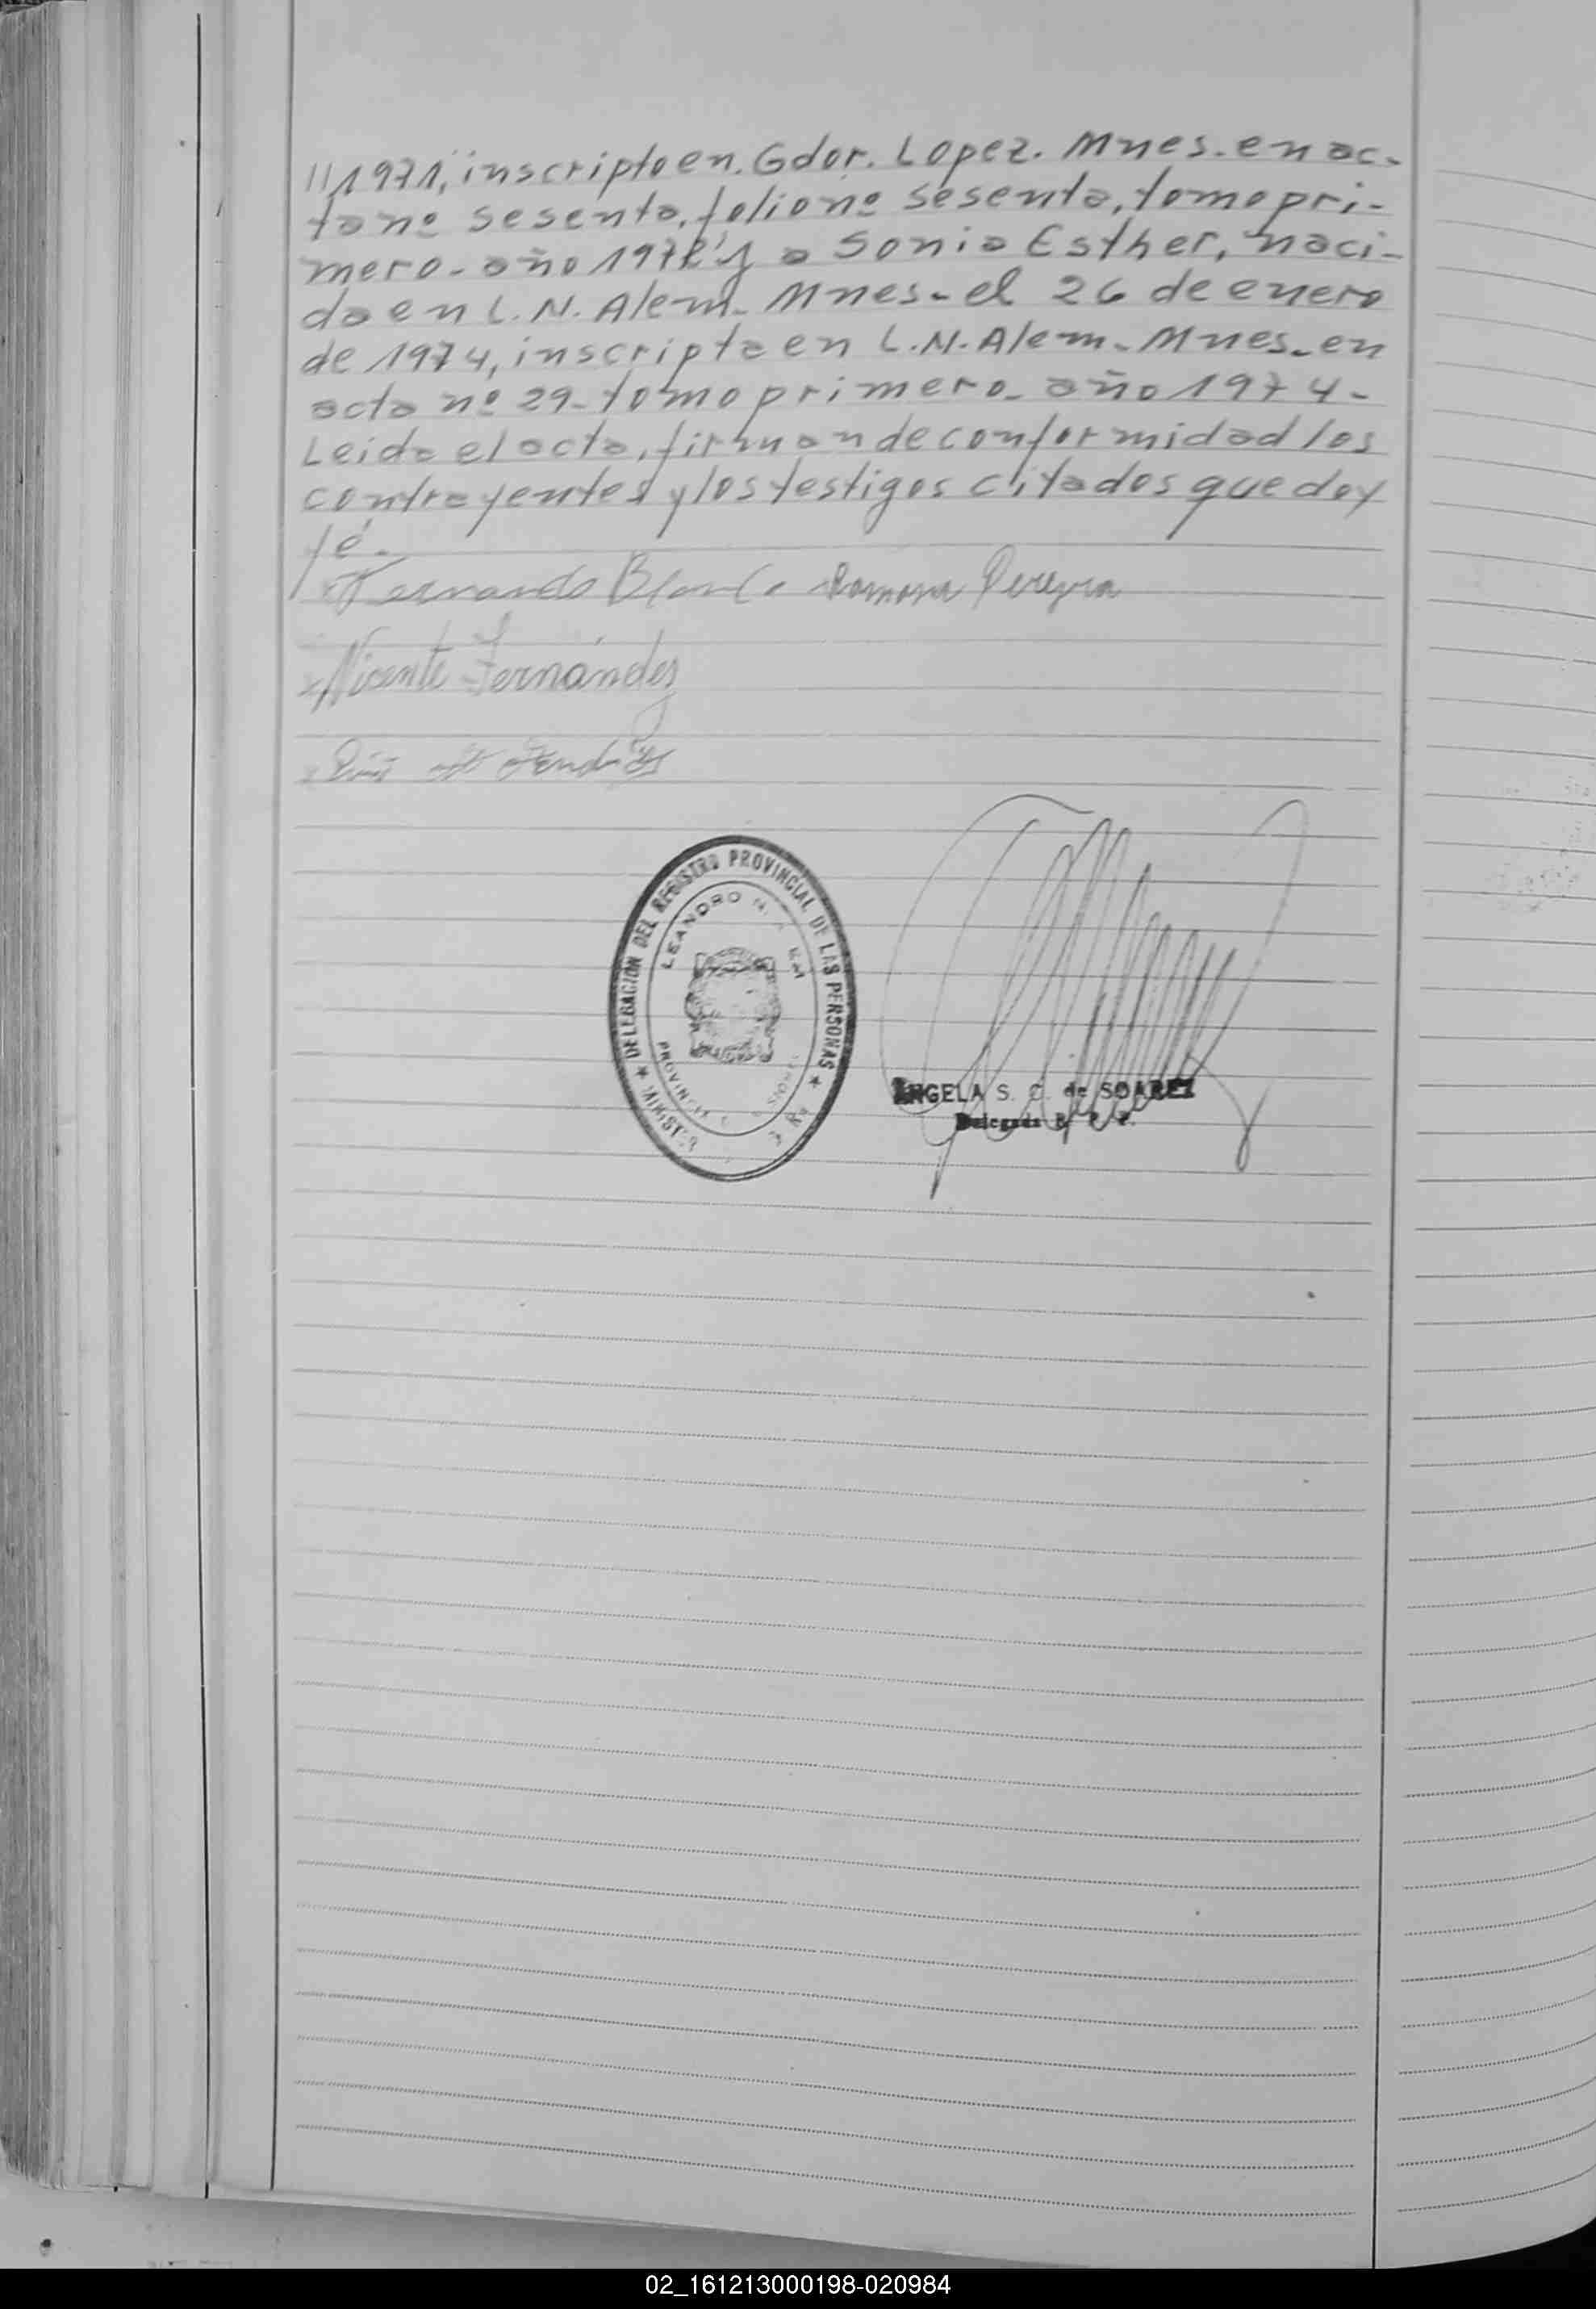 //1971, inscripto en. Gdor. Lopez. Mnes. en ac-
ta nº sesenta, folio nº sesenta, tomo pri-
mero- año 1972 y a Sonia Esther, naci-
da en L. N. Alem- Mnes- el 26 de enero
de 1974, inscripta en L.N. Alem- Mnes- en
acta nº 29- tomo primero- año 1974-
Leida el acta, firman de conformidad los
contrayentes y los testigos citados que doy
fé.-
Fernando Blanco Ramona Pereyra
x Vicente Fernández
DELEGACIÓN DEL REGISTRO PROVINCIAL DE LAS PERSONAS
LEANDRO N.
PROVINCIA
ANGELA S. C. de SOAREZ
Delegada R. P. P.
02_161213000198-020984